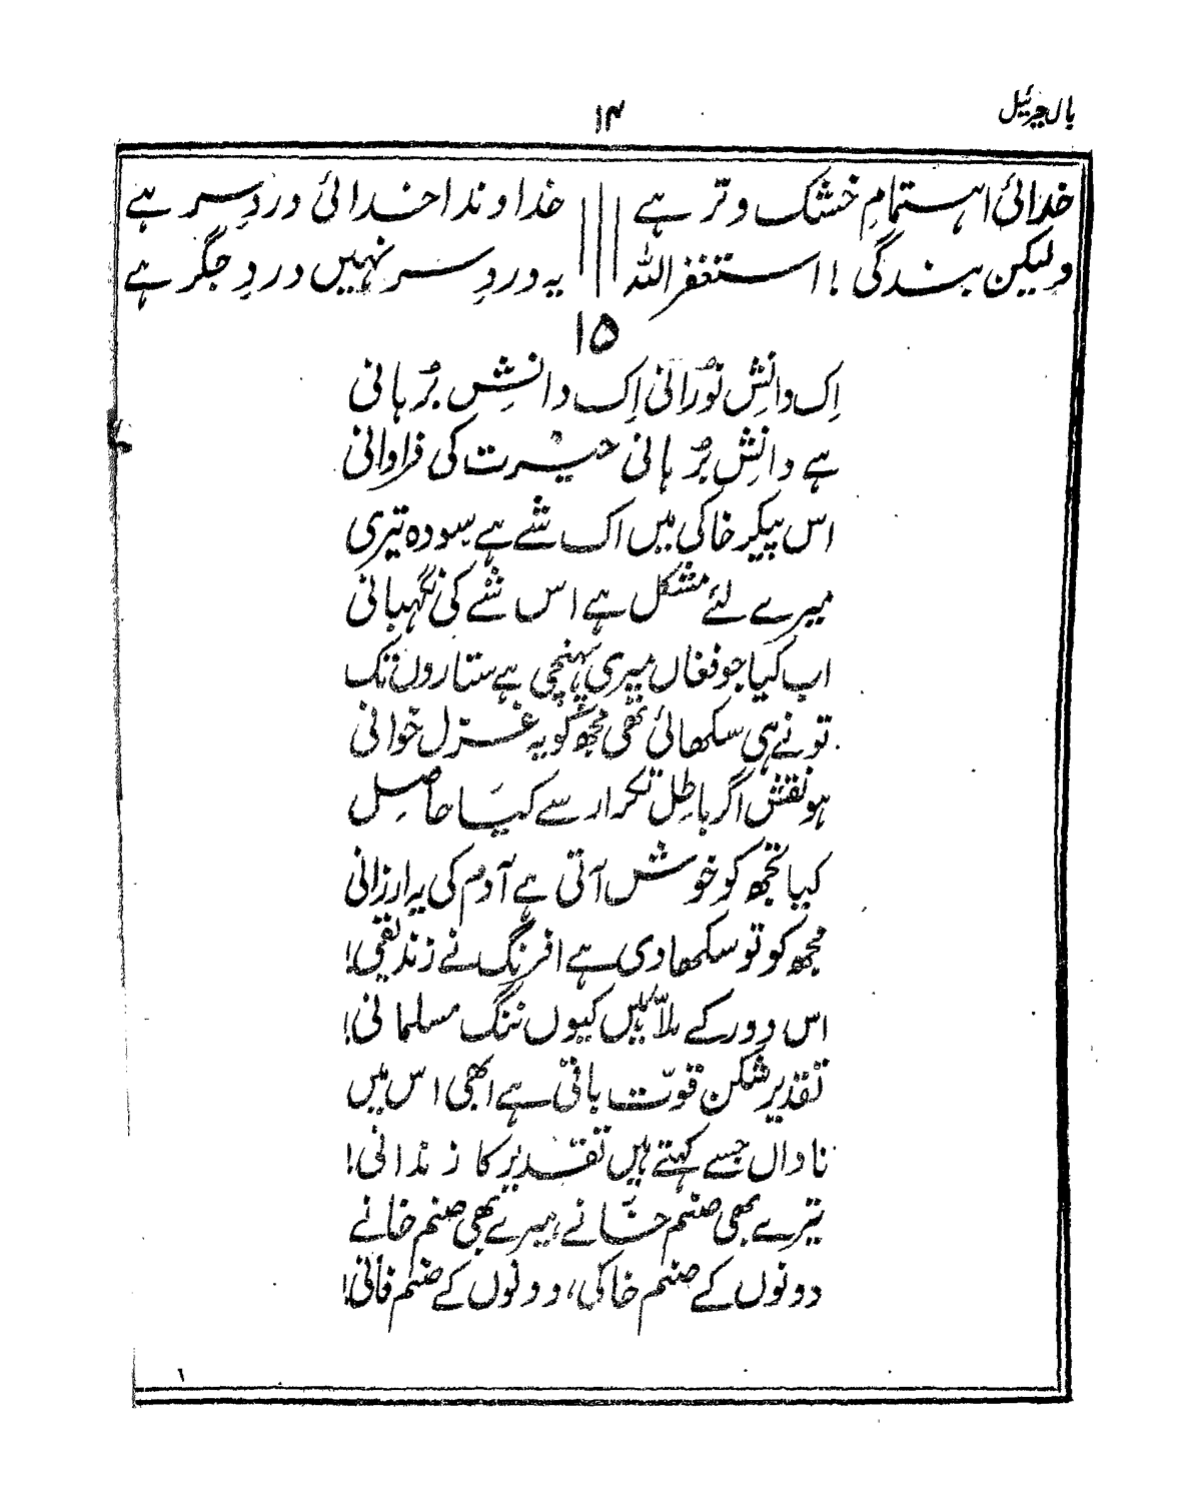 بال جبرئیل
۱۴
خدائی اہتمامِ خشک و تر ہے
خداوندا خدائی دردِ سر ہے
ولیکن بندگی! استغفراللہ
یہ دردِ سر نہیں دردِ جگر ہے
۱۵
اِک دانِشِ نُورانی اِک دانِشِ بُرہانی
ہے دانِشِ بُرہانی حیرت کی فراوانی
اس پیکرِ خاکی میں اک شے ہے سو وہ تیری
میرے لئے مشکل ہے اس شے کی نگہبانی
اب کیا جو فغاں میری پہنچی ہے ستاروں تک
تو نے ہی سکھائی تھی مجھ کو یہ غزل خوانی
ہو نقش اگر باطِل تکرار سے کیا حاصِل
کیا تجھ کو خوش آتی ہے آدم کی یہ ارزانی
مجھ کو تو سکھا دی ہے افرنگ نے زندیقی!
اس دور کے ملّا ہیں کیوں ننگِ مسلمانی!
تقدیر شکن قوّت باقی ہے ابھی اس میں
ناداں جسے کہتے ہیں تقدیر کا زندانی!
تیرے بھی صنم خانے، میرے بھی صنم خانے
دونوں کے صنم خاکی، دونوں کے صنم فانی!